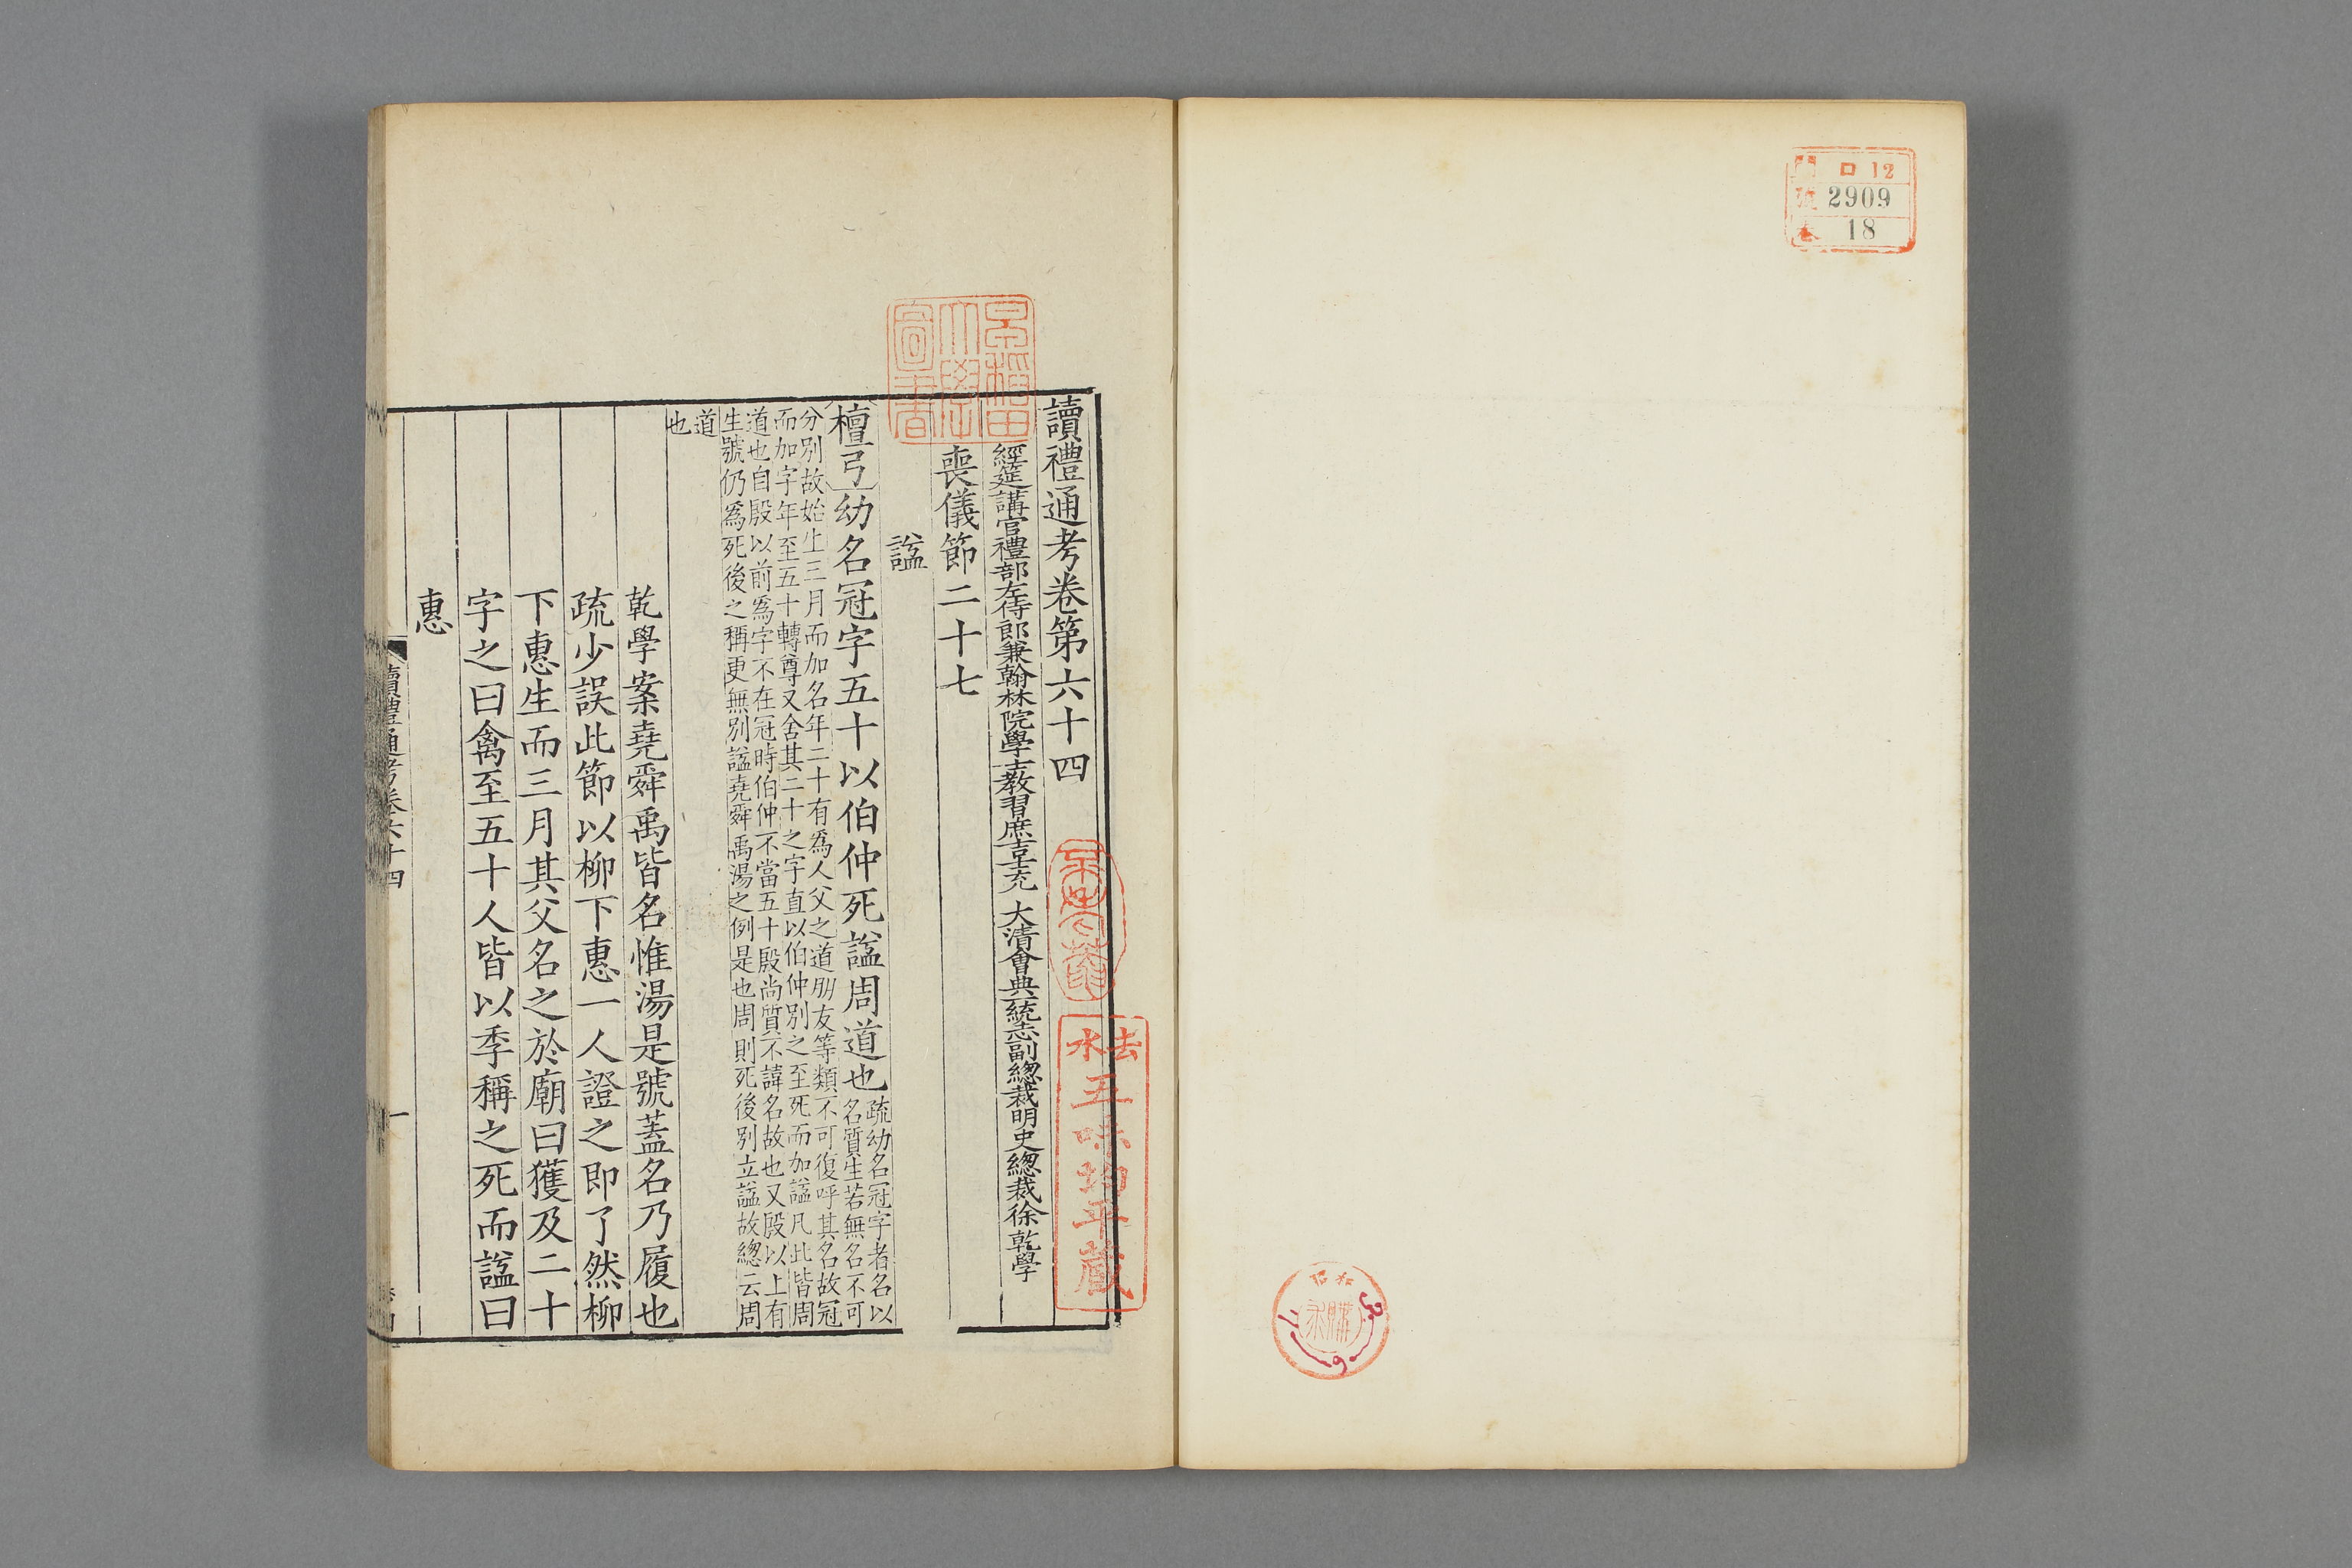 門 ロ 12
號 2909
卷 18
昭和
購求
讀禮通考卷第六十四
經筵講官禮部左侍郎兼翰林院學士教習庶吉士充 大清會典一統志副總裁明史總裁徐乾學
喪儀節二十七
諡
檀弓幼名冠字五十以伯仲死諡周道也
疏幼名冠字者名以
名質生若無名不可
分別故始生三月而加名年二十有爲人父之道朋友等類不可復呼其名故冠
而加字年至五十轉尊又舍其二十之字直以伯仲別之至死而加諡凡此皆周
道也自殷以前爲字不在冠時伯仲不當五十殷尚質不諱名故也又殷以上有
生號仍爲死後之稱更無別諡堯舜禹湯之例是也周則死後別立諡故總云周
道
也
乾學案堯舜禹皆名惟湯是號蓋名乃履也
疏少誤此節以柳下惠一人證之即了然柳
下惠生而三月其父名之於廟曰獲及二十
字之曰禽至五十人皆以季稱之死而諡曰
惠
讀禮通考卷六十四
一
早稲田大學圖書
五味均平藏